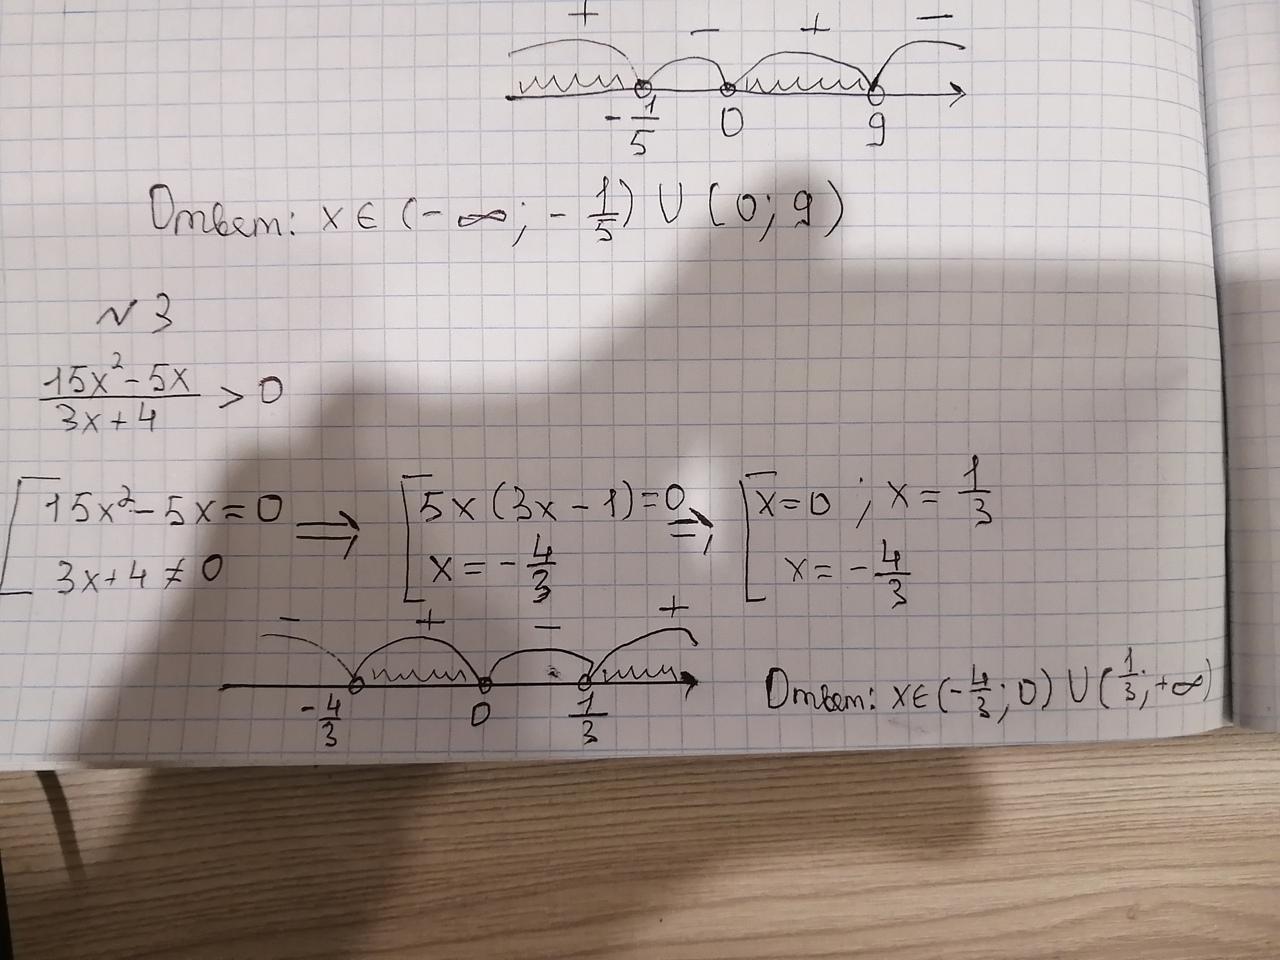 + − + −
-1/5 0 9
Ответ: x∈(-∞; -1/5) ∪ (0; 9)
№3
(15x²-5x)/(3x+4) > 0
[15x²-5x=0 ⇒ [5x(3x-1)=0 ⇒ [x=0 ; x=1/3
3x+4≠0 x=-4/3 x=-4/3
− + − +
-4/3 0 1/3
Ответ: x∈(-4/3; 0) ∪ (1/3; +∞)